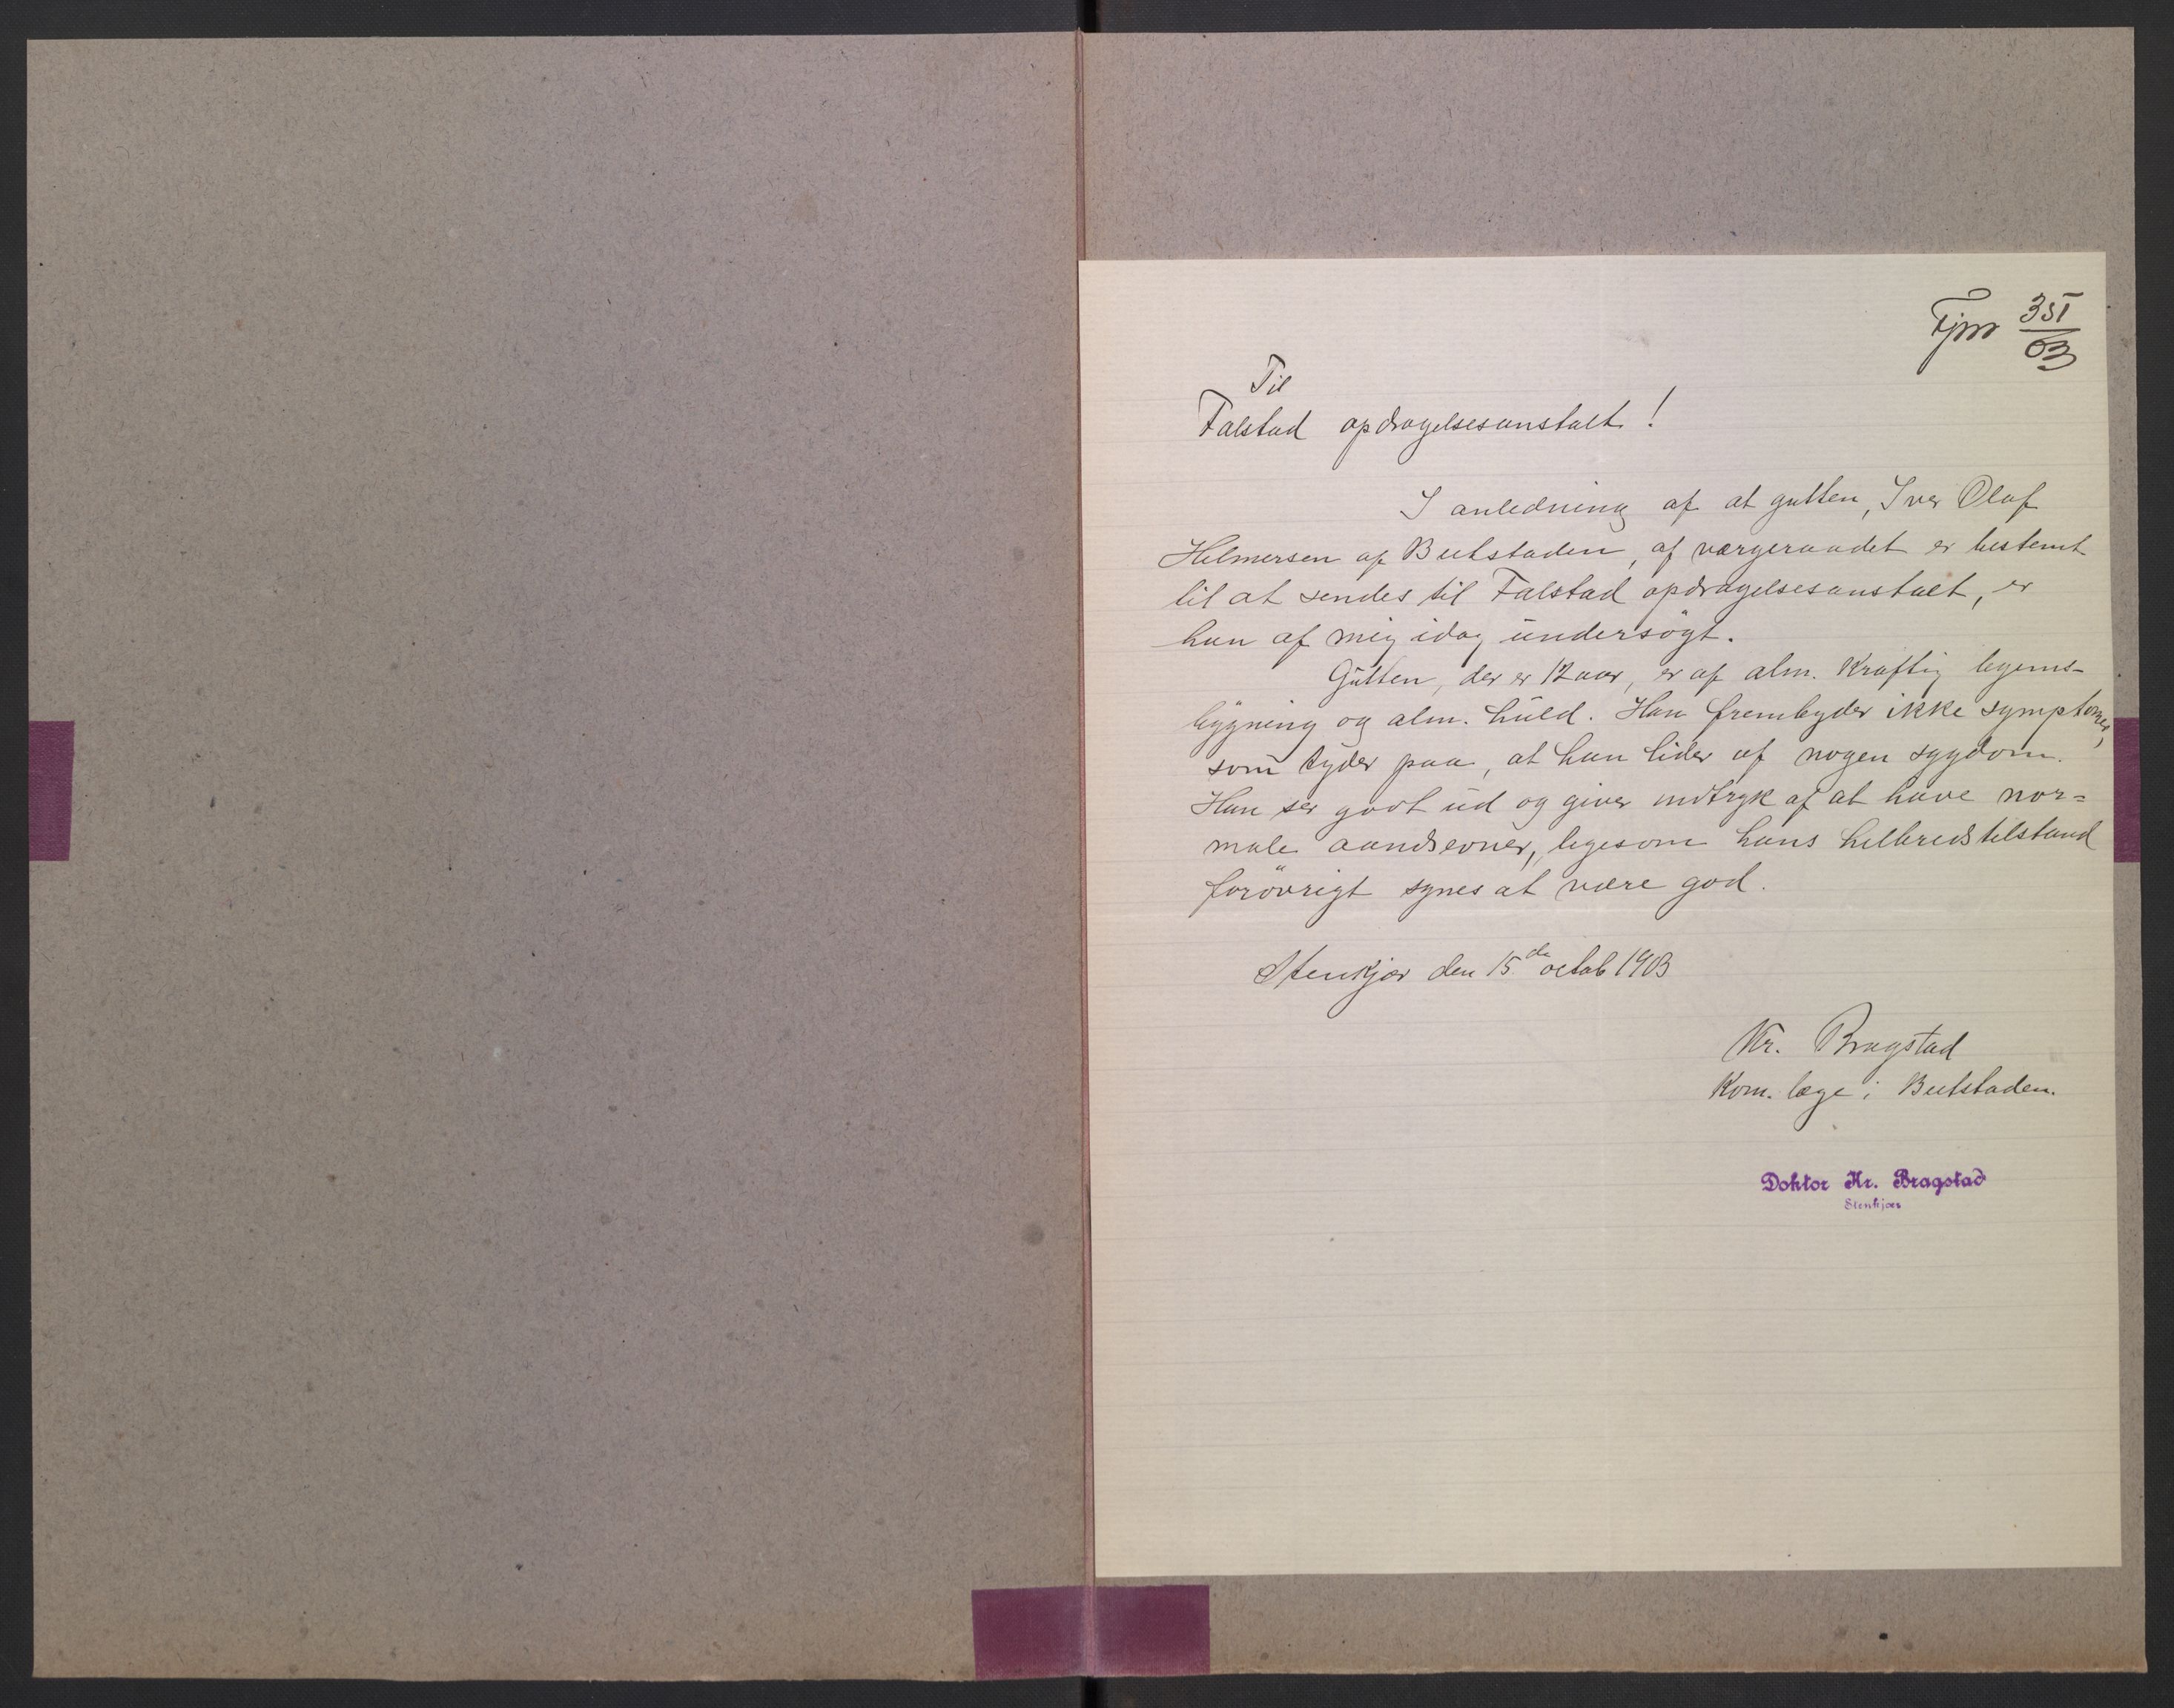 Fjnr 351/03
Til
Falstad opdragelsesanstalt!
I anledning af at gutten, Iver Olaf
Helmersen af Beitstaden, af værgeraadet er bestemt
til at sendes til Falstad opdragelsesanstalt, er
han af mig idag undersögt.
Gutten, der er 12 aar, er af alm. kraftig legems-
bygning og alm. huld. Han frembyder ikke symptomer,
som tyder paa, at han lider af nogen sygdom.
Han ser godt ud og giver indtryk af at have nor=
male aandsevner, ligesom hans helbredstilstand
forövrigt synes at være god.
Stenkjær den 15de octob 1903
Kr. Bragstad
Kom. læge i Beitstaden.
Doktor Kr. Bragstad
Stenkjær